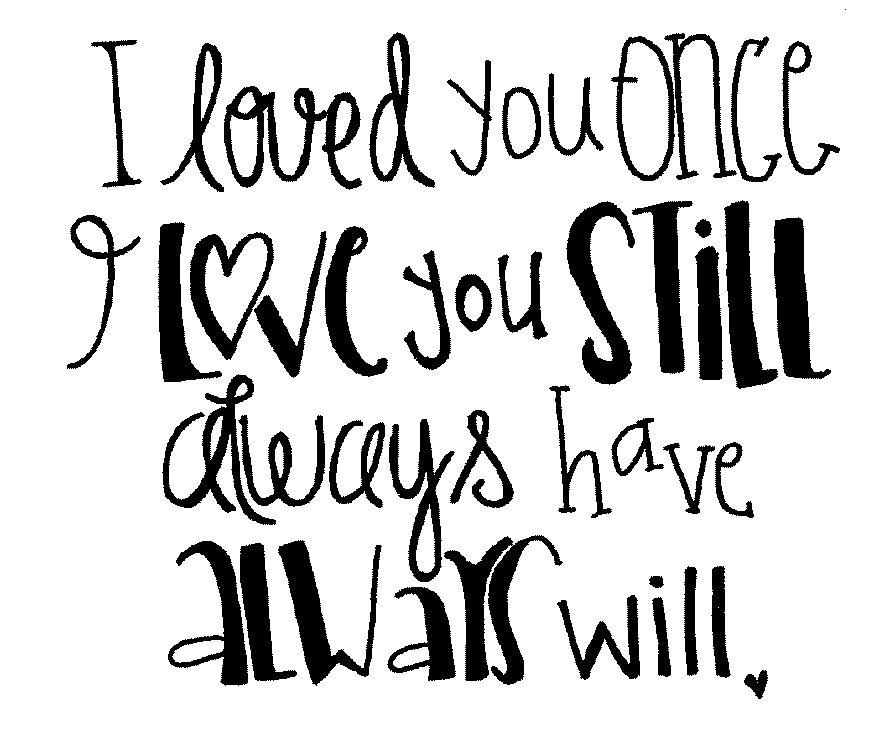 I loved you once
I love you STILL
always have
always will.